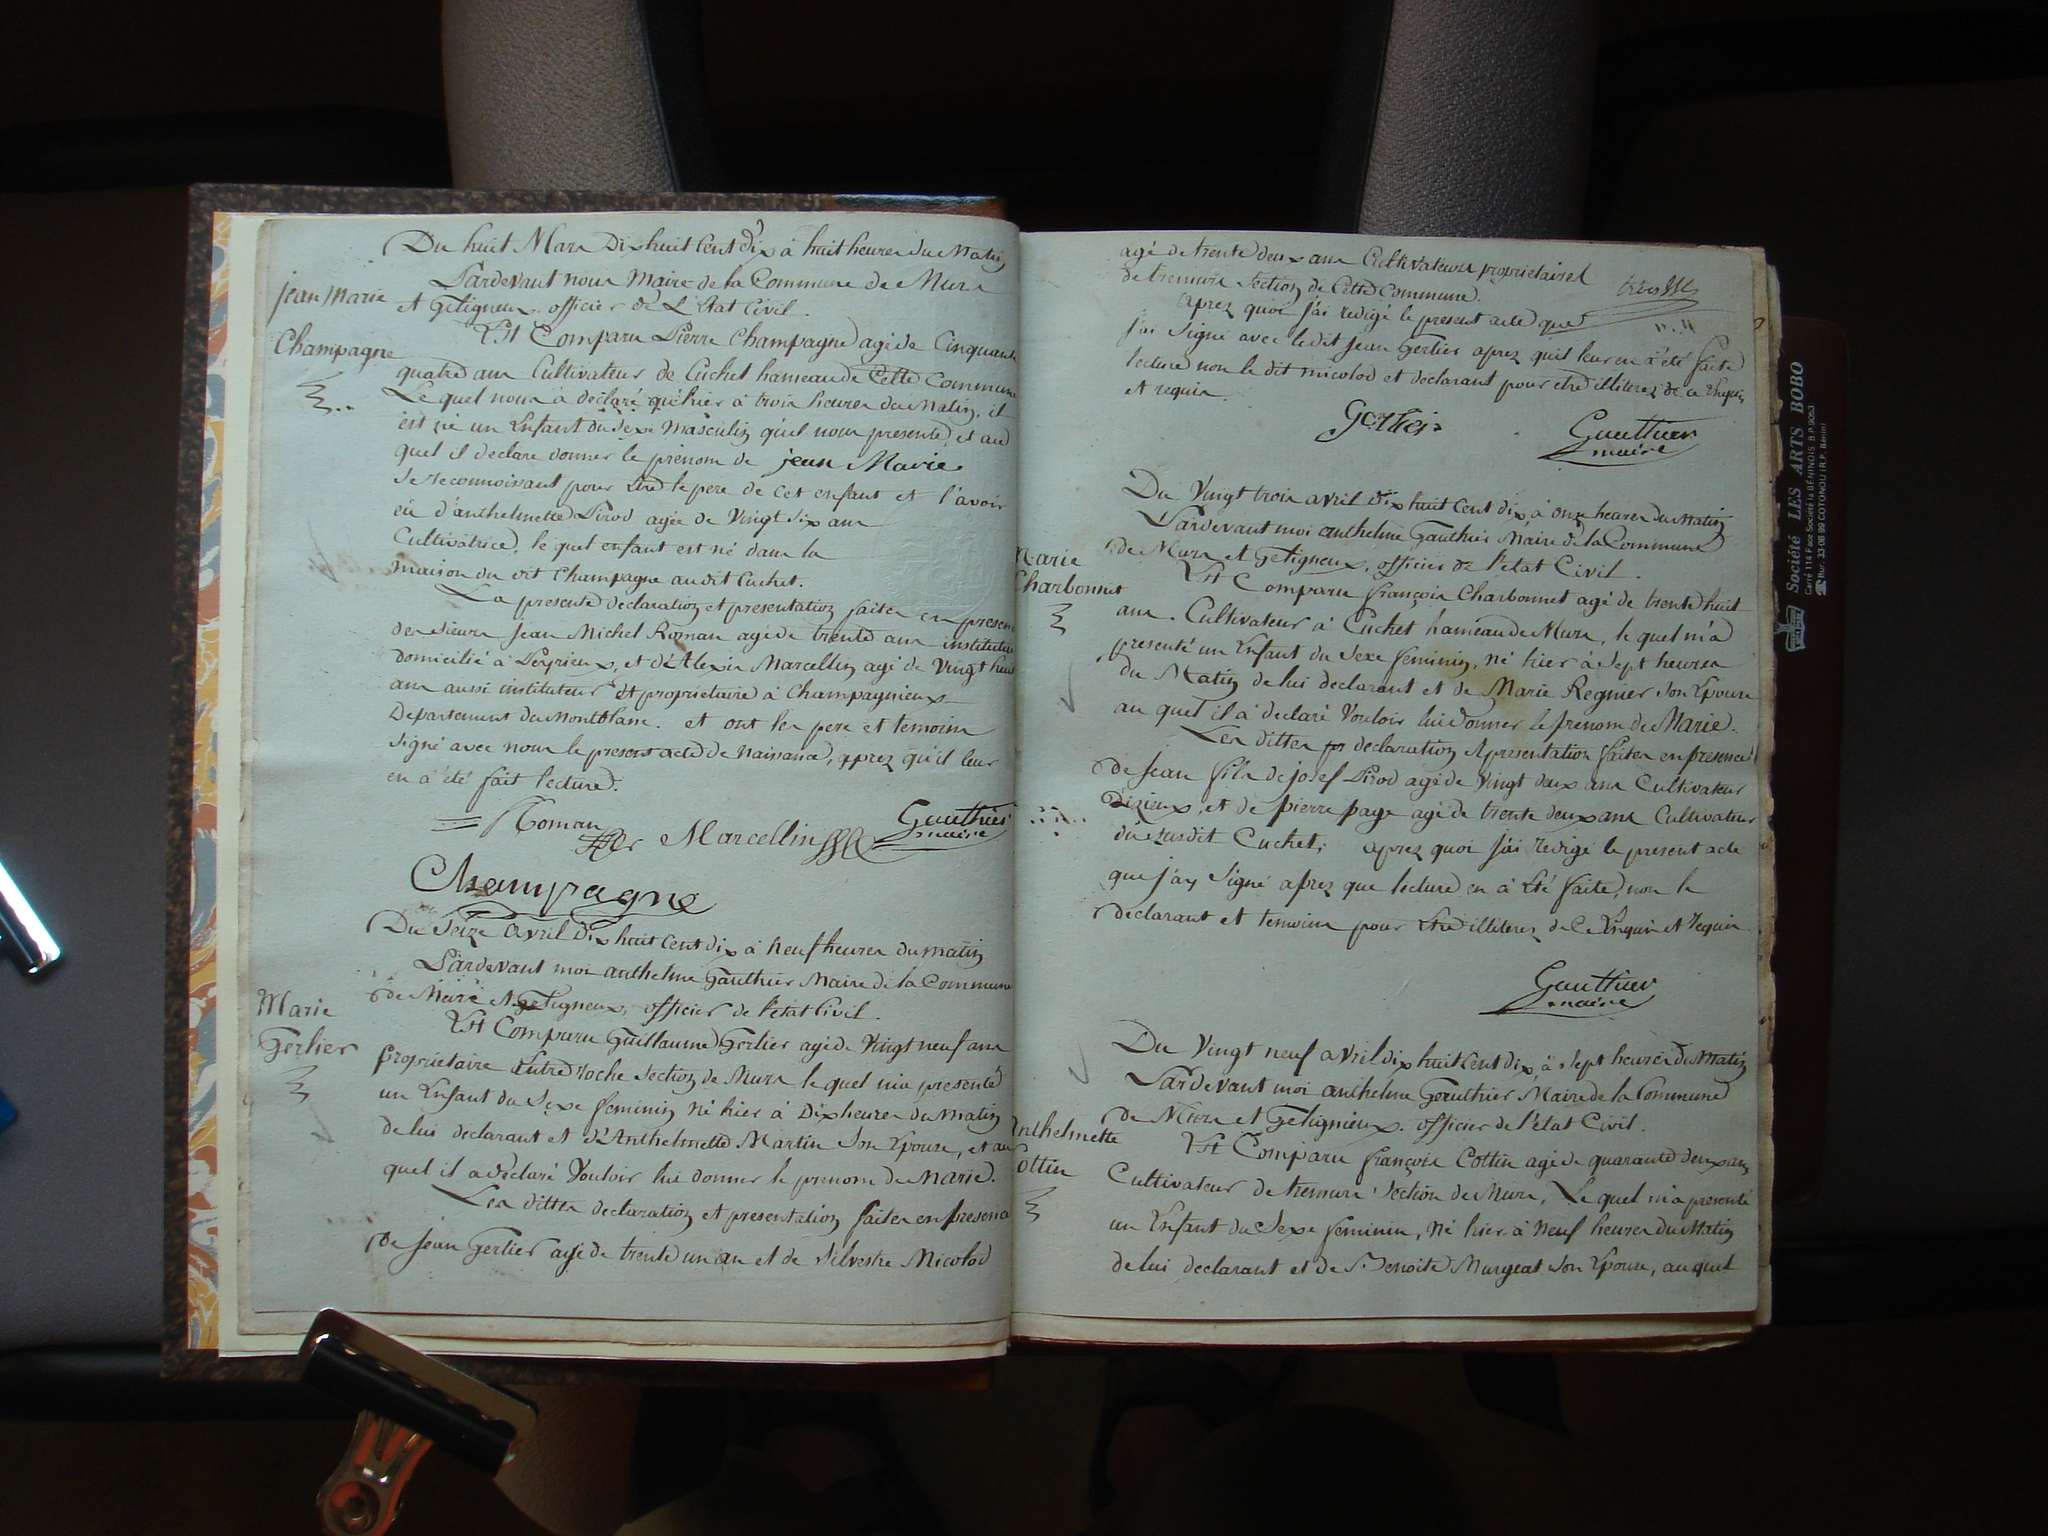 Du huit Mars Dix huit Cent dix à huit heures du Matin
Pardevant nous Maire de la Commune de Murs
et Geligneux, officier de L'Etat Civil.
Jean Marie
Champagne
Est Comparu Pierre Champagne agé de Cinquante
quatre ans Cultivateur de Cuchet hameau de Cette Commune
Le quel nous à déclaré qu'hier à trois heures du Matin, il
est né un Enfant du Sexe Masculin qu'il nous presente, et au
quel il declare donner le prénom de jean Marie
Se reconnoissant pour être le pere de cet enfant et l'avoir
eu d'anthelmette Pirod agée de Vingt Six ans
Cultivatrice, le quel enfant est né dans la
maison du dit Champagne au dit Cuchet.
La presente declaration et presentation faites en presence
des Sieurs Jean Michel Roman agé de trente ans instituteur
domicilié à Peyrieux, et d'Alexis Marcellin agé de Vingt huit
ans aussi instituteur et proprietaire à Champagnieux
Departement du Montblanc. et ont les pere et temoins
Signé avec nous le present acte de Naissance, apprez qu'il leur
en à été fait lecture.
Roman Marcellin Gauthier
maire
Champagne
Du Seize Avril Dix huit Cent dix à Neuf heures du matin
Pardevant moi anthelme Gauthier Maire de la Commune
de Murs et Geligneux, officier de l'état Civil.
Marie
Gerlier
Est Comparu Guillaume Gerlier agé de Vingt neuf ans
proprietaire Entreroche Section de Murs le quel m'a presenté
un Enfant du Sexe feminin Né hier à Dix heures du Matin
de lui declarant et d'Anthelmette Martin Son Epouse, et au
quel il a déclaré Vouloir lui donner le prenom de Marie.
Les dittes declaration et presentation faites en presence
de Jean Gerlier agé de trente un an et de Silvestre Micolod
agé de trente deux ans Cultivateurs proprietaires
de tremurs Section de Cette Commune.
aprez quoi j'ai redigé le present acte que
j'ai Signé avec ledit Jean Gerlier aprez qu'il leur en à été faite
lecture non le dit micolod et declarant pour etre illiterez de ce Enquis
et requis.
Gerlier Gauthier
maire
Du Vingt trois avril dix huit Cent dix, à onze heures du Matin
Pardevant moi anthelme Gauthier Maire de la Commune
de Murs et Geligneux, officier de l'etat Civil.
Marie
Charbonnet
Est Comparu françois Charbonnet agé de trente huit
ans. Cultivateur à Cuchet hameau de Murs, le quel m'a
presenté un Enfant du Sexe feminin, né hier à Sept heures
du Matin de lui declarant et de Marie Regnier Son Epouse
au quel il à declaré Vouloir lui donner le prenom de Marie.
Les dittes declaration et presentation faites en presence
de Jean fils de josef Pirod agé de Vingt deux ans Cultivateur
Dizieux, et de pierre page agé de trente deux ans Cultivateur
du Susdit Cuchet; aprez quoi j'ai redigé le present acte
que j'ay Signé aprez que lecture en à été faite, non le
declarant et temoins pour etre illiterez de ce Enquis et Requis.
Gauthier
maire
Du Vingt neuf avril dix huit Cent dix, à Sept heures du Matin
Pardevant moi anthelme Gauthier Maire de la Commune
de Murs et Geligneux. officier de l'état Civil.
Anthelmette
Cottin
Est Comparu françois Cottin agé de quarante deux ans
Cultivateur de tremurs Section de Murs, Le quel m'a presenté
un Enfant du Sexe feminin, Né hier à Neuf heures du Matin
de lui declarant et de Benoite Murgeat Son Epouse, au quel
Société LES ARTS BOBO
Carré 114 Face Société la BÉNINOIS B.P. 9053
Bur. 33 06 99 COTONOU (R.P. Bénin)